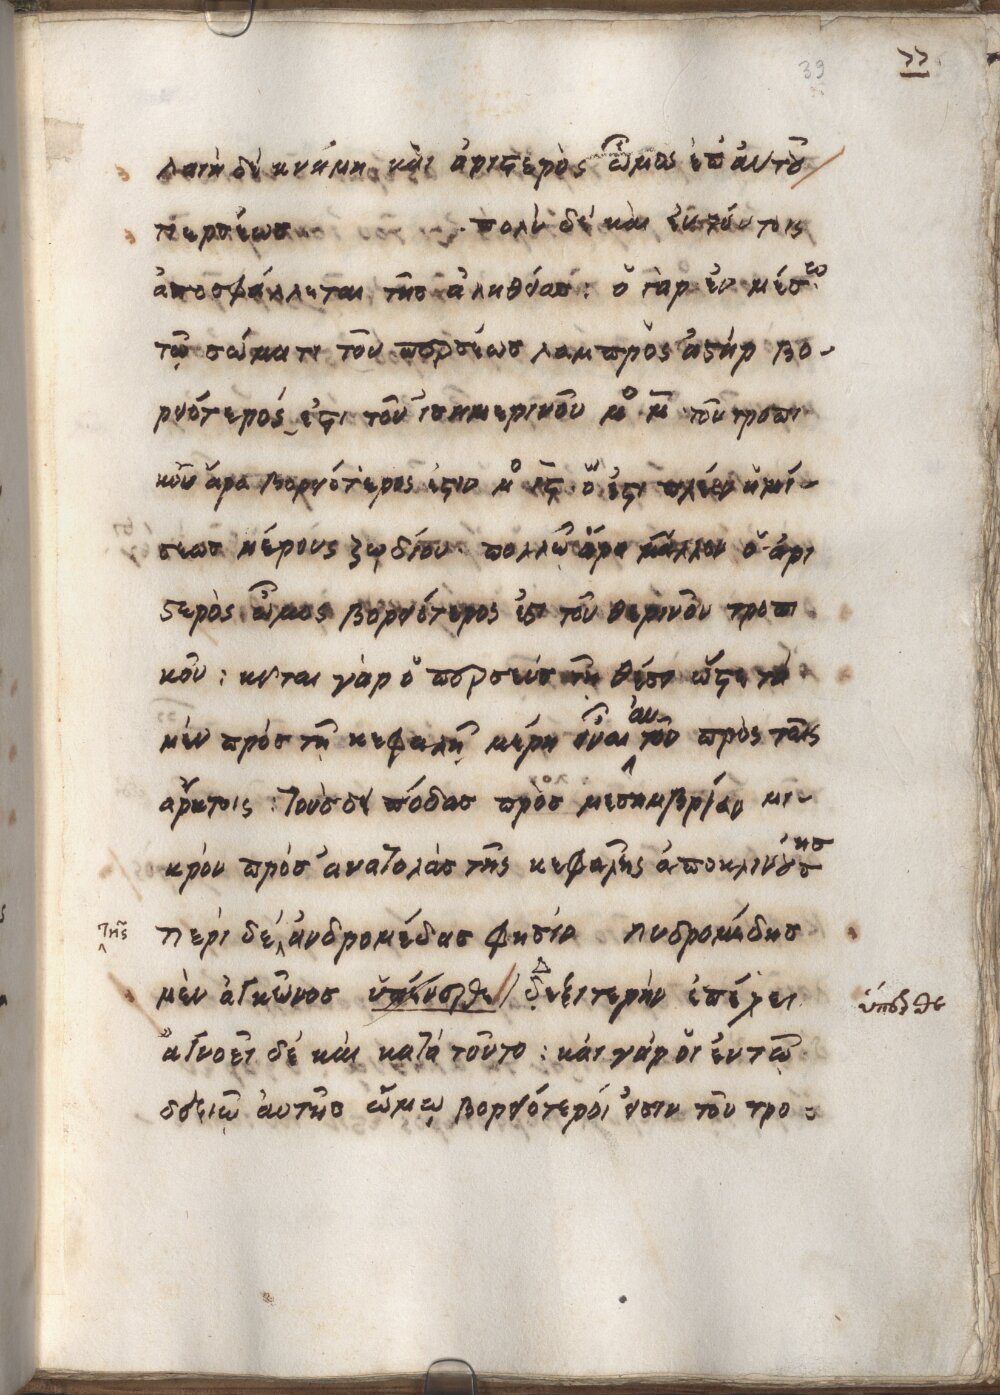 39
77
λαιὴ δὲ κνήμη καὶ ἀριστερὸς ὦμος ἐπ' αὐτοῦ
περσέως πολὺ δὲ καὶ ἐν τούτοις
ἀποσφάλλεται τῆς ἀληθείας : ὁ γὰρ ἐν μέσω
τῷ σώματι τοῦ περσέως λαμπρὸς ἀστήρ βο-
ρειότερός ἐστι τοῦ ἰσημερινοῦ μο μ τοῦ τροπι
κοῦ ἄρα βορειότερος ἐστιν μο ιϛ ὅ ἐστι πλέον ἡμί-
σεως μέρους ζῳδίου πολλῷ ἄρα μᾶλλον ὁ ἀρι
στερὸς ὦμος βορειότερος ἐστι τοῦ θερινοῦ τροπι
κοῦ : κεῖται γὰρ ὁ περσεὺς τῇ θέσει ὥστε τὰ
μὲν πρὸς τῇ κεφαλῇ μέρη εἶναι αὐτοῦ πρὸς ταῖς
ἄρκτοις : τοὺς δὲ πόδας πρὸς μεσημβρίαν μι-
κρὸν πρὸς ἀνατολὰς τῆς κεφαλῆς ἀποκλινούσης
περὶ δὲ τῆς ἀνδρομέδας φησίν ἀνδρομέδης
μὲν ἀγκῶνος ὕπένερθε δεξιτερὴν ἐπέχει
ὕπερθε
ἀγνοεῖ δὲ καὶ κατὰ τοῦτο : καὶ γὰρ οἱ ἐν τῷ
δεξιῷ αὐτῆς ὤμῳ βορειότεροί εἰσιν τοῦ τρο :